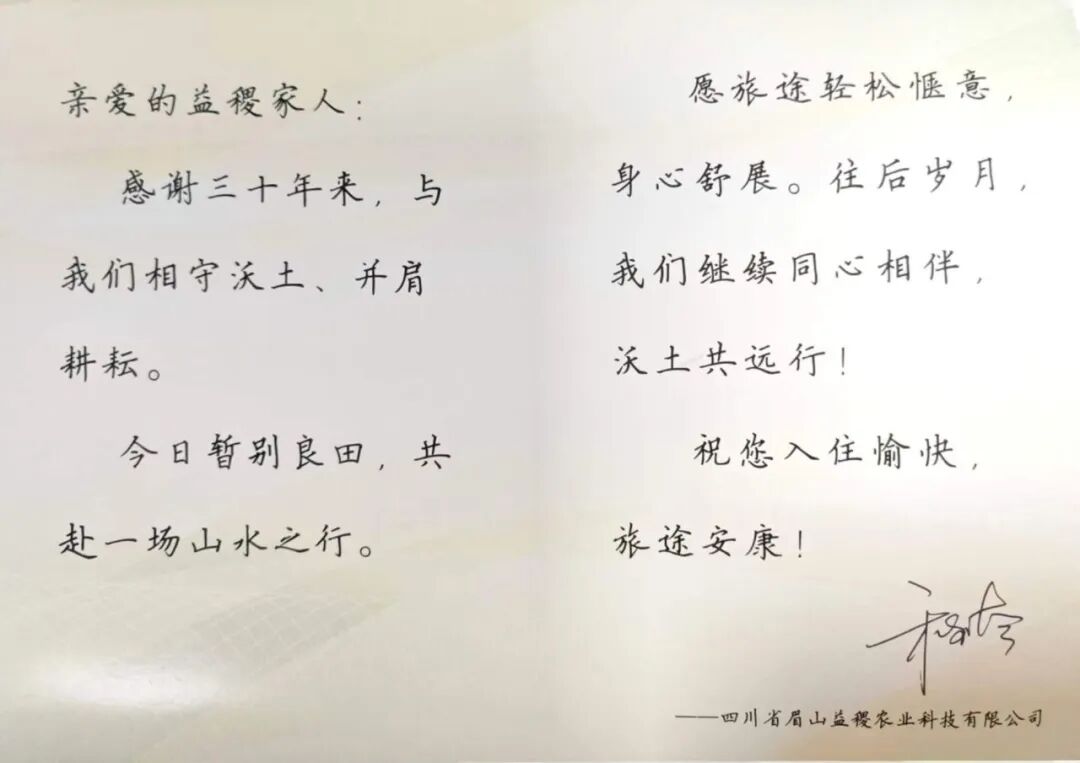 亲爱的益稷家人：
感谢三十年来，与
我们相守沃土、并肩
耕耘。
今日暂别良田，共
赴一场山水之行。
愿旅途轻松惬意，
身心舒展。往后岁月，
我们继续同心相伴，
沃土共远行！
祝您入住愉快，
旅途安康！
——四川省眉山益稷农业科技有限公司